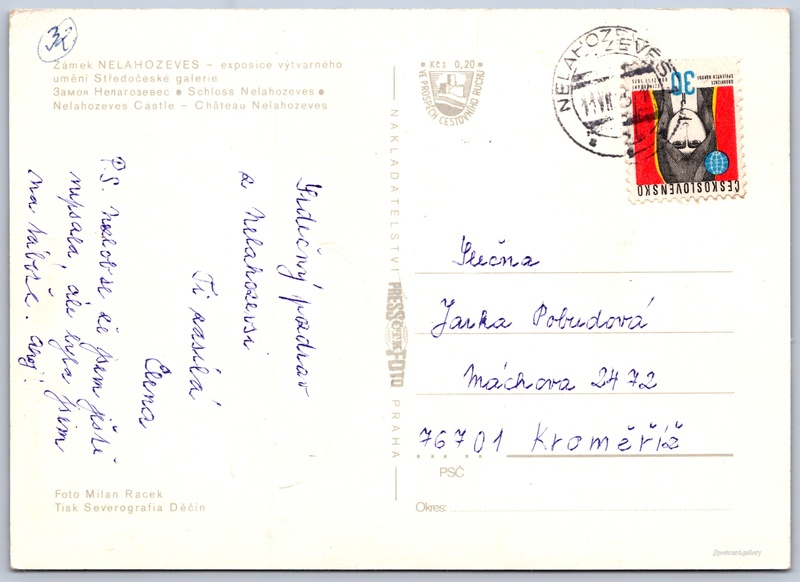 32
Zámek NELAHOZEVES – exposice výtvarného
umění Středočeské galerie
Замок Нелагозевес ● Schloss Nelahozeves ●
Nelahozeves Castle – Château Nelahozeves
Kčs 0,20
VE PROSPĚCH CESTOVNÍHO RUCHU
NELAHOZEVES
30
ČESKOSLOVENSKO
Srdečný pozdrav
z Nelahozevsi
Ti zasílá
Elena
P.S. Nezlob se že jsem ještě
nepsala, ale byla jsem
na táboře. Ahoj!
NAKLADATELSTVÍ PRESSFOTO PRAHA
Slečna
Jarka Pobudová
Máchova 2472
76701 Kroměříž
PSČ
Okres:
Foto Milan Racek
Tisk Severografia Děčín
postcard.gallery